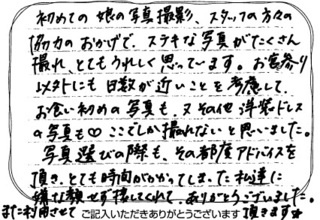 初めての娘の写真撮影、スタッフの方々の
協力のおかげで、ステキな写真がたくさん
撮れ、とてもうれしく思っています。お宮参り
以外にも日数が近いことを考慮して、
お食い初めの写真も、又その他、洋装ドレス
の写真も♡ ここでしか撮れないと思いました。
写真選びの際も、その都度アドバイスを
頂き、とても時間がかかってしまった私達に
嫌な顔せず接してくれて、ありがとうございました。
また利用させて頂きます☆
ご記入いただきありがとうございます